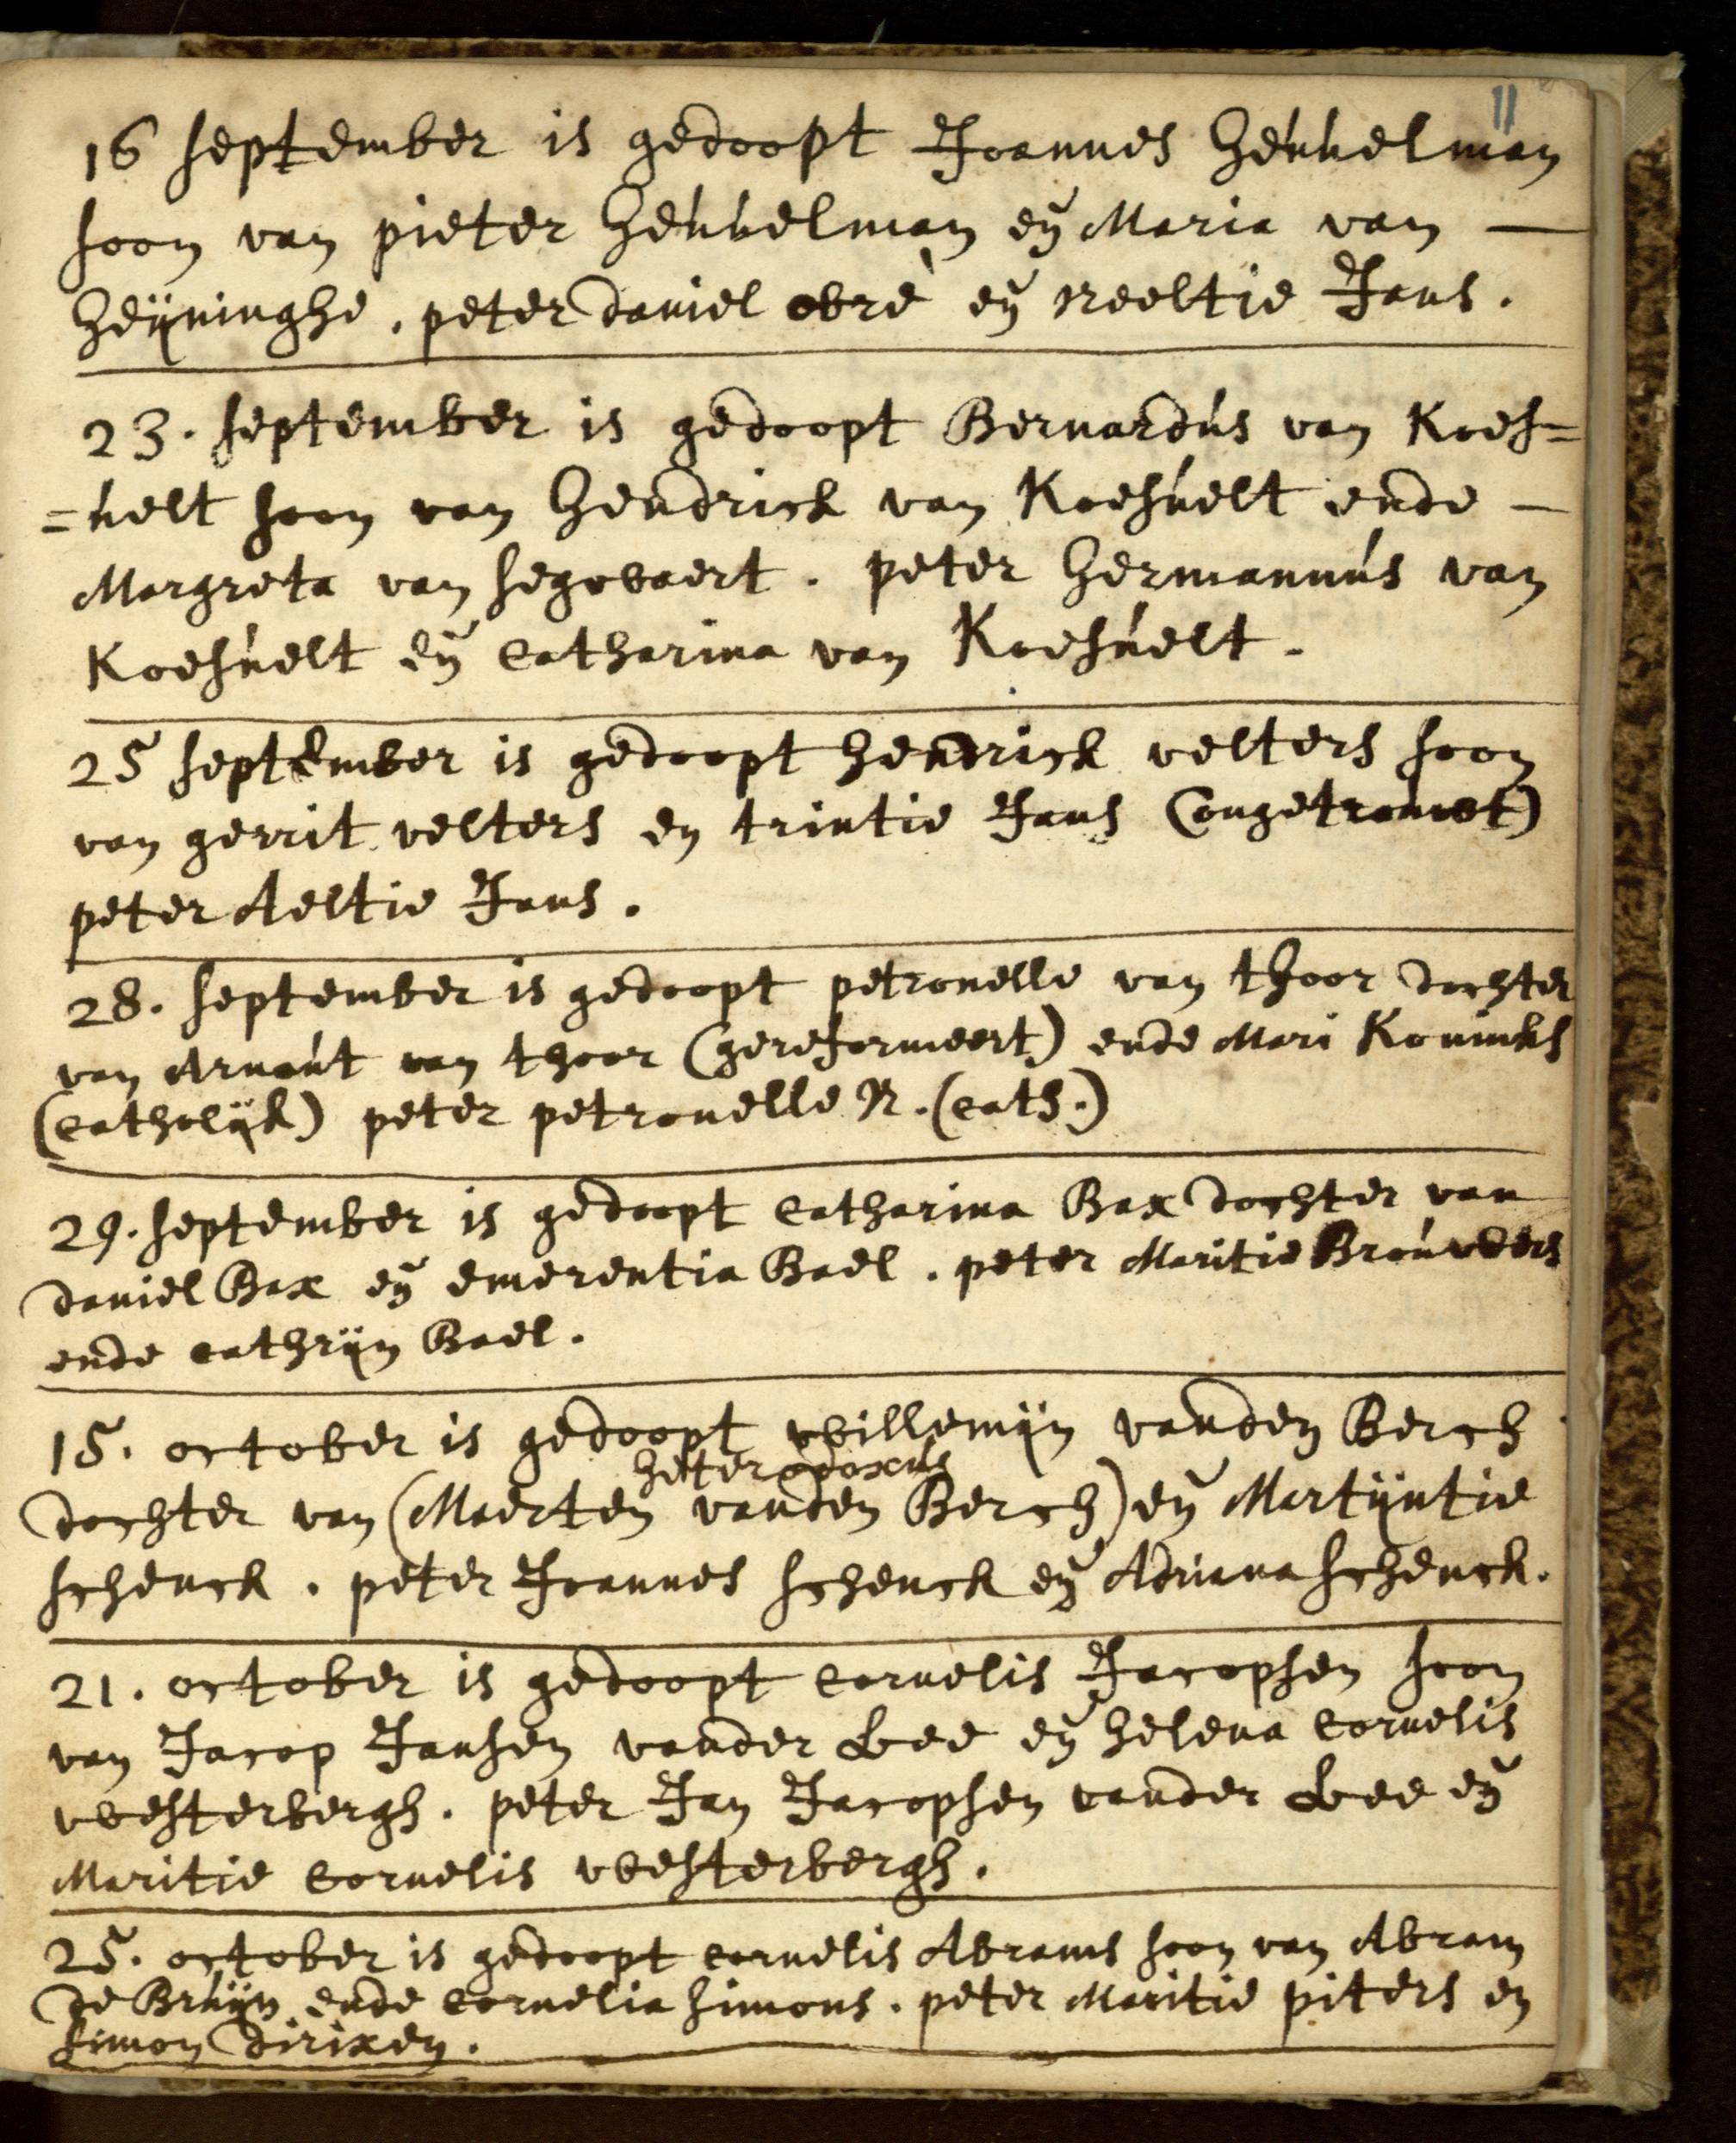 11
16 september is gedoopt Joannes Heuvelman
soon van pieter Heuvelman eñ Maria van —
Heÿninghe . peter daniel obrè eñ Neeltie Jans .
23 . september is gedoopt Bernardus van Koes=
=uelt soon van Hendrick van Koesuelt ende —
Margreta van segevaert . peter Hermannus van
Koesuelt eñ Catharina van Koesuelt .
25 september is gedoopt Hendrick velters soon
van gerrit velters en trintie Jans (ongetrouwt)
peter Aeltie Jans .
28 . september is gedoopt petronelle van thoor dochter
van Arnout van thoor (gereformeert) ende Mari Koninks
(catholÿk) peter petronelle N. (cath.)
29 . september is gedoopt Catharina Bax dochter van
daniel Bax eñ emerentia Bael . peter Maritie Brouwers
ende Cathrÿn Bael .
15 . october is gedoopt willemÿn vanden Berch
heterodoxus
dochter van (Maerten vanden Berch) eñ Martÿntie
schenck . peter Joannes schenck eñ Adriana schenck .
21 . october is gedoopt Cornelis Jacopsen soon
van Jacop Jansen vander Lee eñ Helena Cornelis
westerbergh . peter Jan Jacopsen vander Lee eñ
Maritie Cornelis westerbergh .
25 . october is gedoopt Cornelis Abrams soon van Abram
de Bruÿn ende Cornelia simons . peter Maritie piters en
simon dirixen .